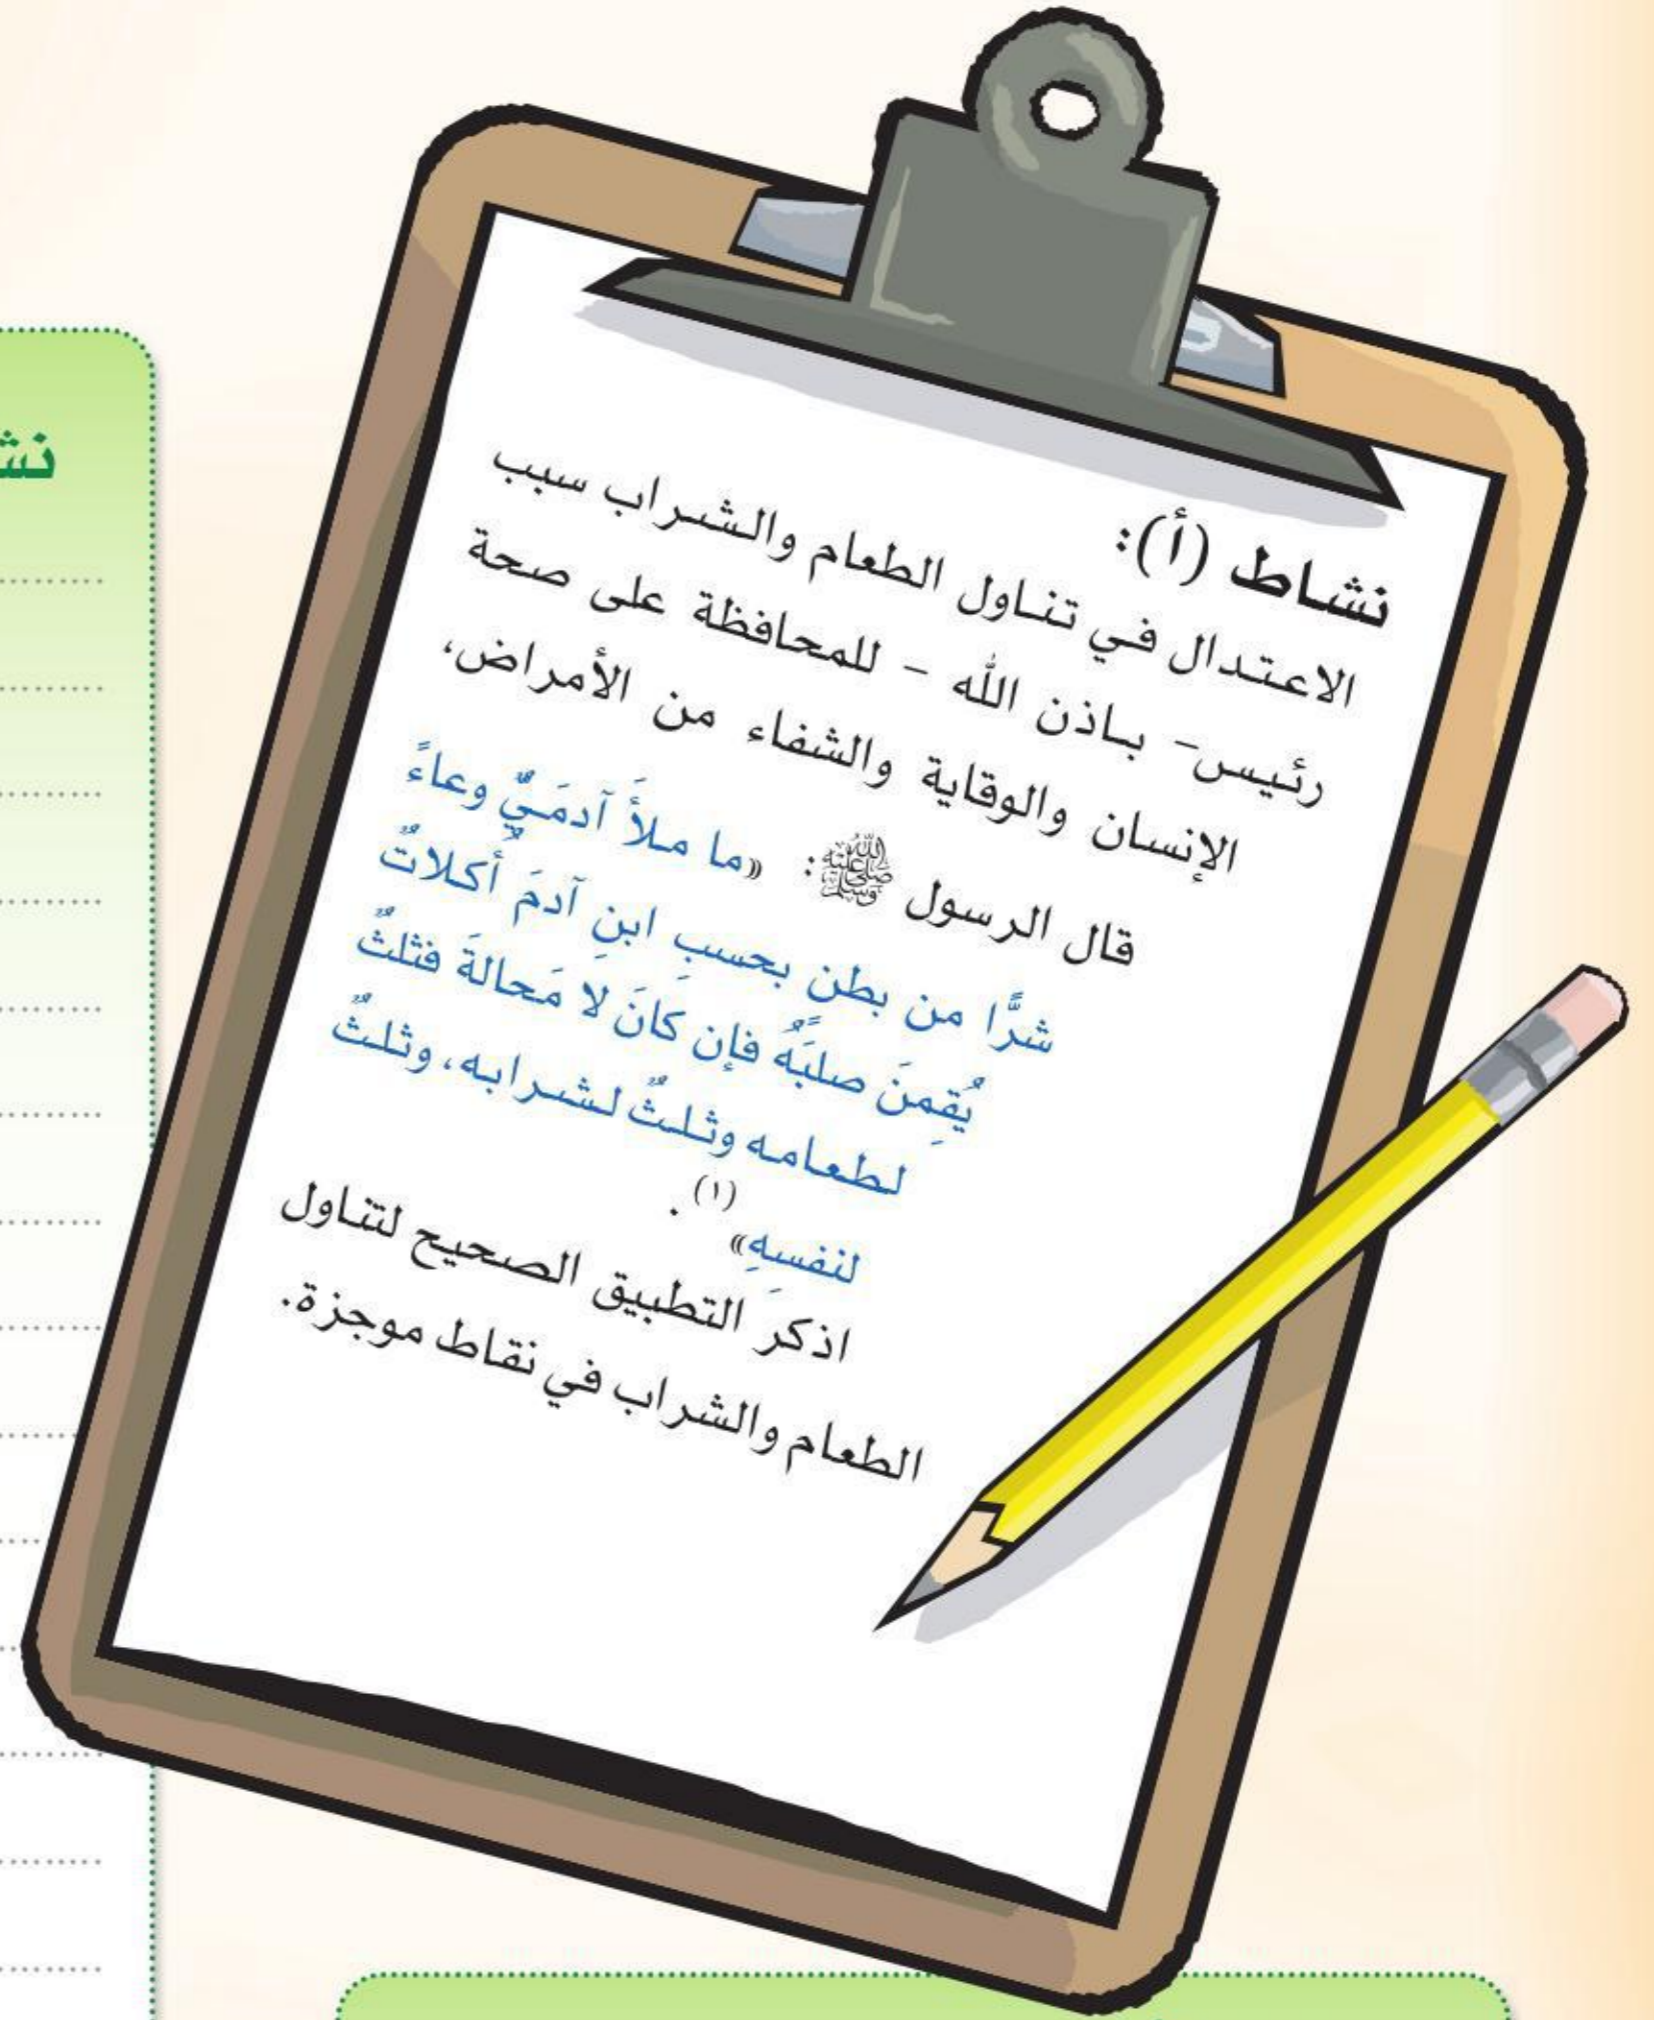 نشاط (أ):
الاعتدال في تناول الطعام والشراب سبب
رئيس- باذن الله - للمحافظة على صحة
الإنسان والوقاية والشفاء من الأمراض،
قال الرسول ﷺ: «ما ملأَ آدمَيٌّ وعاءً
شرًّا من بطن بحسبِ ابنِ آدمَ أُكلاتٌ
يُقِمنَ صلبَهُ فإن كانَ لا مَحالةَ فثلثٌ
لطعامه وثلثٌ لشرابه، وثلثٌ
لنفسهِ»(١).
اذكر التطبيق الصحيح لتناول
الطعام والشراب في نقاط موجزة.